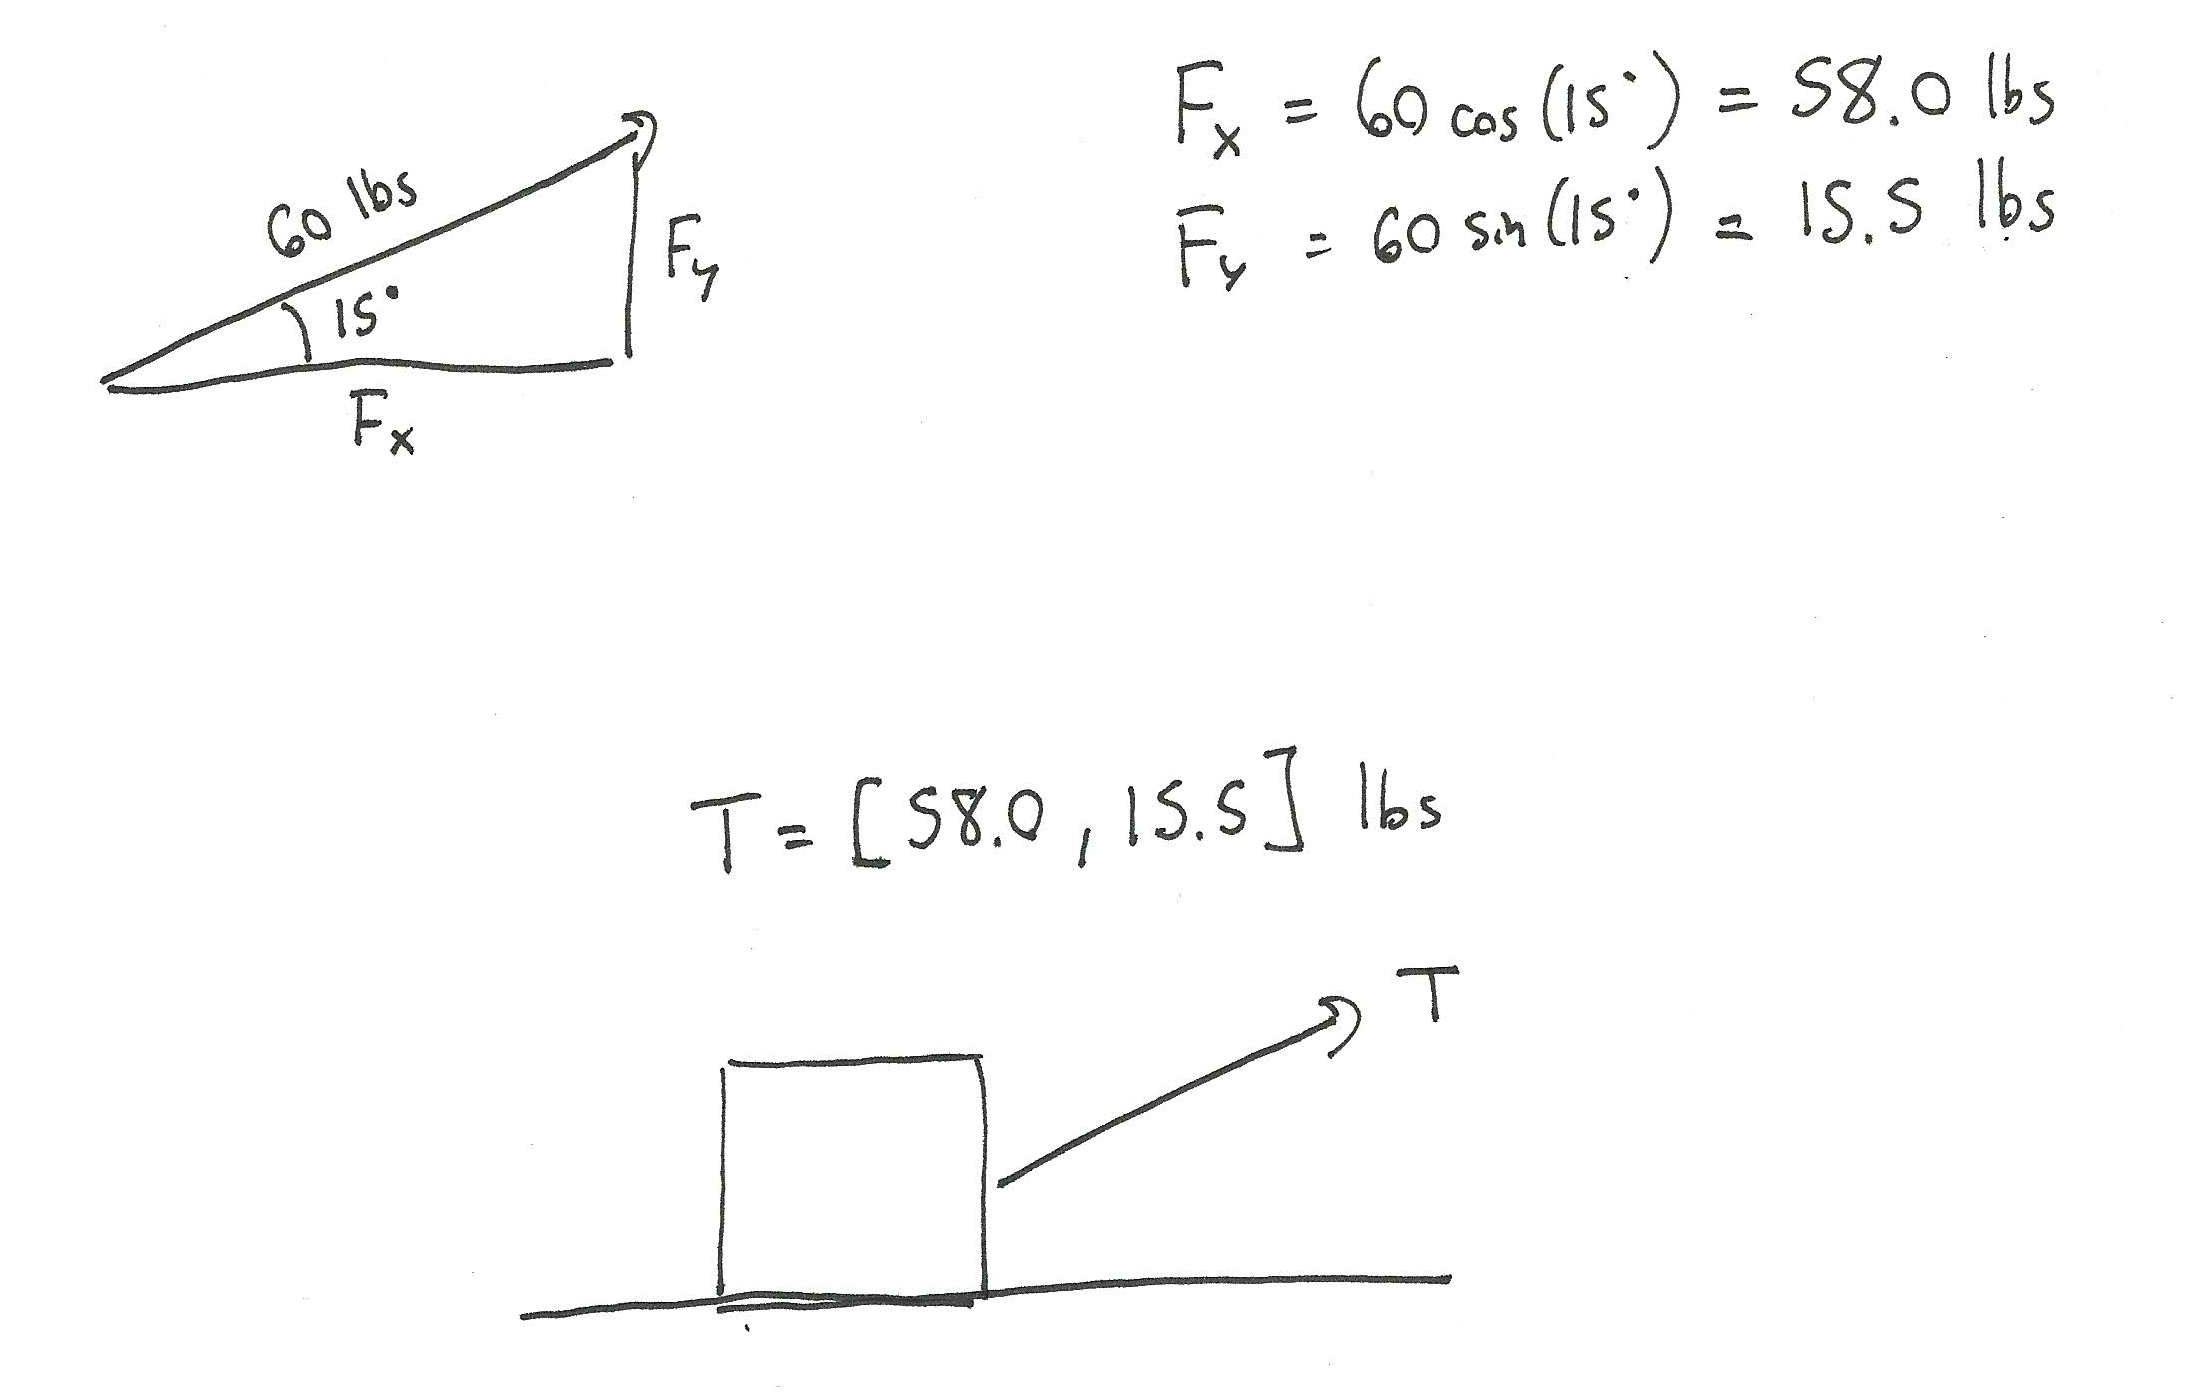 60 lbs
15°
Fy
Fx
Fx = 60 cos (15°) = 58.0 lbs
Fy = 60 sin (15°) = 15.5 lbs
T = [58.0, 15.5] lbs
T